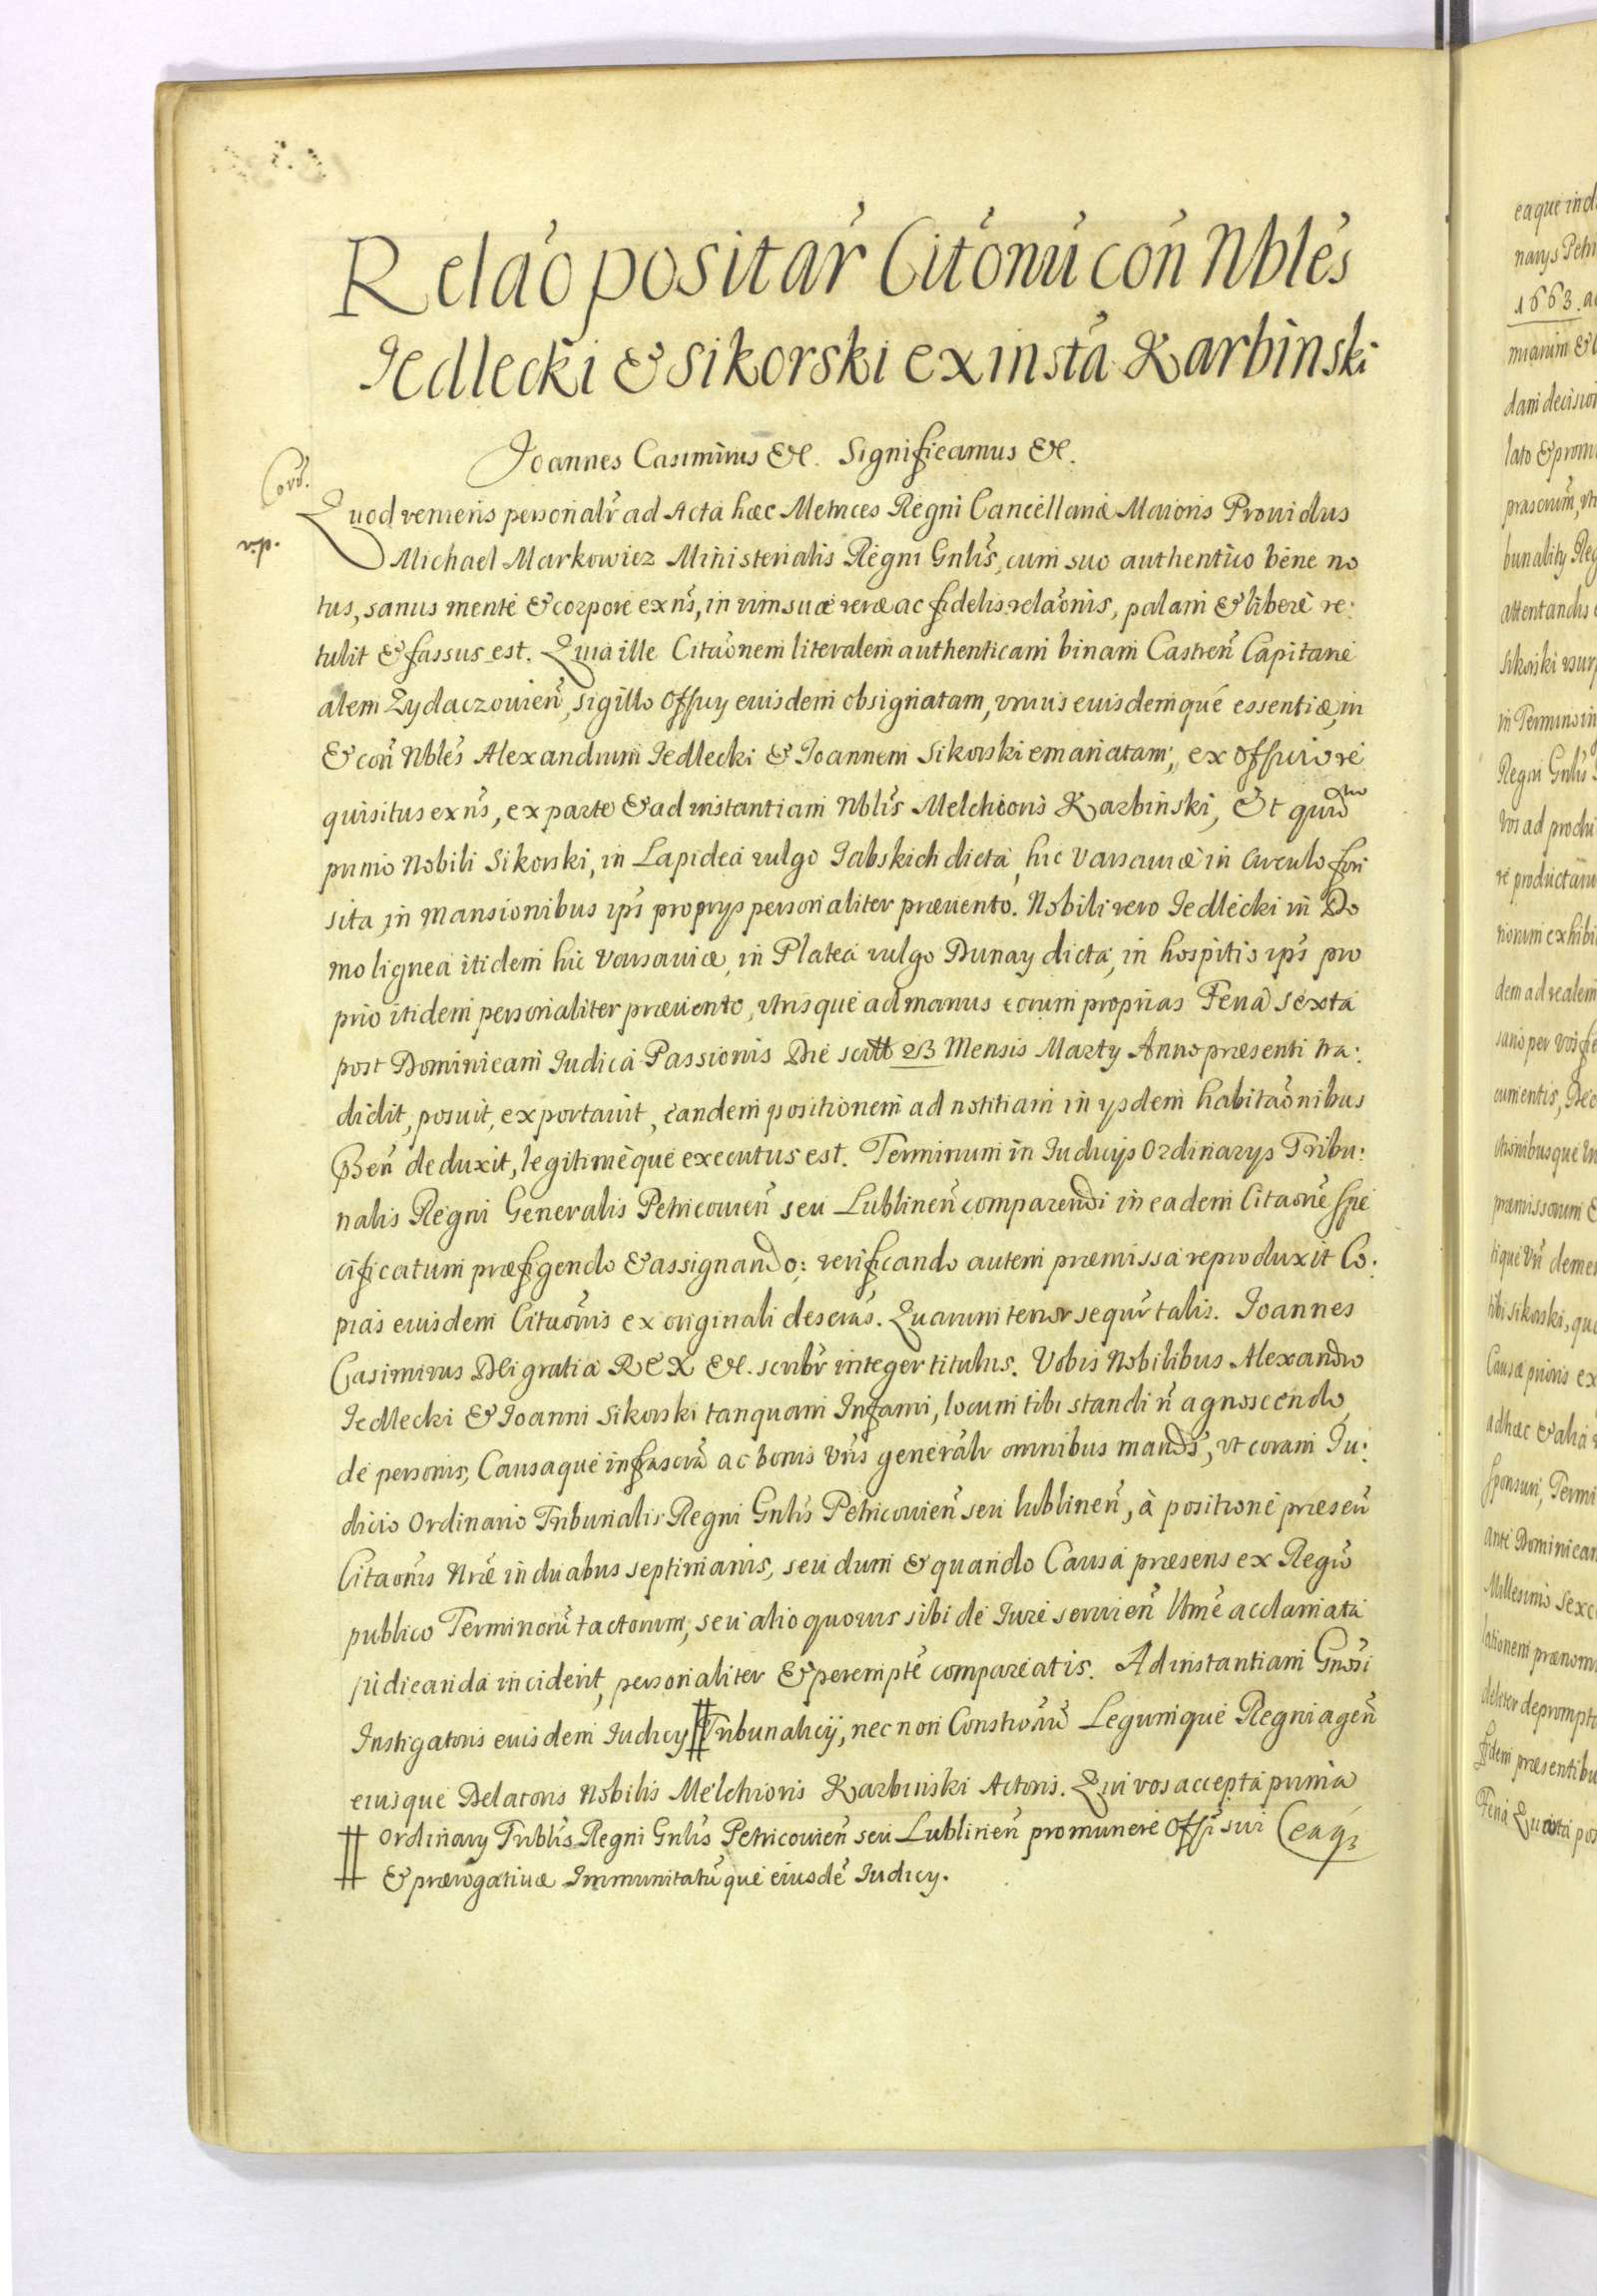 Relaõ positar̃ Citõnũ coñ Nbles̃
Jedlecki & Sikorski ex insta Karbinski
Joannes Casimirus &c. Significamus &c.
Cord.
Quod veniens personalr̃ ad Acta hæc Metrices Regni Cancellariæ Maioris Prouidus
v.p.
Michael Markowicz Ministerialis Regni Gnlis̃, cum suo authentico bene no
tus, sanus mente & corpore exñs, in vim suæ veræ ac fidelis relaõnis, palam & libere re:
tulit & fassus est. Quia ille Citaõnem literalem authenticam binam Castreñ Capitane
alem Zydaczouieñ, sigillo Officy eiusdem obsignatam, vnius eiusdemque essentiæ, in
& coñ Nbles̃ Alexandrum Jedlecki & Joannem Sikorski emanatam, ex officio re
quisitus exñs, ex parte & ad instantiam Nblis̃ Melchioris Karbinski, Et quid
primo Nobili Sikorski, in Lapidea vulgo Jabskich dicta, hic Varsauiæ in Circulo fori
sita, in mansionibus ips̃ proprys personaliter præuento. Nobili vero Jedlecki in Do
mo lignea itidem hic Varsauiæ, in Platea vulgo Dunay dicta, in hospitio ips̃ pro
prio itidem personaliter præuento, vtrisque ad manus eorum proprias Feria sexta
post Dominicam Judica Passionis Die scitt 23 Mensis Marty Anno præsenti tra:
didit, posuit, exportauit, eandem positionem ad notitiam in ysdem habitaõnibus
Beñ deduxit, legitimèque executus est. Terminum in Judicijs Ordinarys Tribu:
nalis Regni Generalis Petricouieñ seu Lublineñ comparendi in eadem Citaõne spe
cificatum præfigendo & assignando: verificando autem præmissa reproduxit Co:
pias eiusdem Citaõnis ex originali descras̃. Quarum tenor sequr̃ talis. Joannes
Casimirus DEi gratia REX &c. scribr̃ integer titulus. Vobis Nobilibus Alexandro
Jedlecki & Joanni Sikorski tanquam Infami, locum tibi standi ñ agnoscendo,
de personis, Causaque infrascrã ac bonis vris̃ generalr̃ omnibus mands̃, vt coram Ju:
dicio Ordinario Tribunalis Regni Gnlis̃ Petricouieñ seu lublineñ, à positione præseñ
Citaõnis Nræ̃ in duabus septimanis, seu dum & quando Causa præsens ex Regrõ
publico Terminorũ tactorum, seu alio quouis sibi de Jure seruieñ Vtme acclamata
judicanda inciderit, personaliter & perempte compareatis. Ad instantiam Gnosi
Instigatoris eiusdem Judicy ‡ Tribunalicij, nec non Constionũ Legumque Regni ageñ
eiusque Delatoris Nobilis Melchioris Karbinski Actoris. Qui vos accepta prima
‡ Ordinary Triblis̃ Regni Gnlis̃ Petricouieñ seu Lublineñ pro munere Offi sui
eaq;
& prærogatiuæ Immunitatũque eiusdẽ Judicy.
eaque ind
narys Petri
1663. a
lato & prom
bunality Reg
attentandis
in Terminis in
Regni Gnlis̃
vos ad produ
re productam
dem ad realem
tibi Sikorski, qu
Causæ prioris ex
ad hæc & alia
ante Dominicam